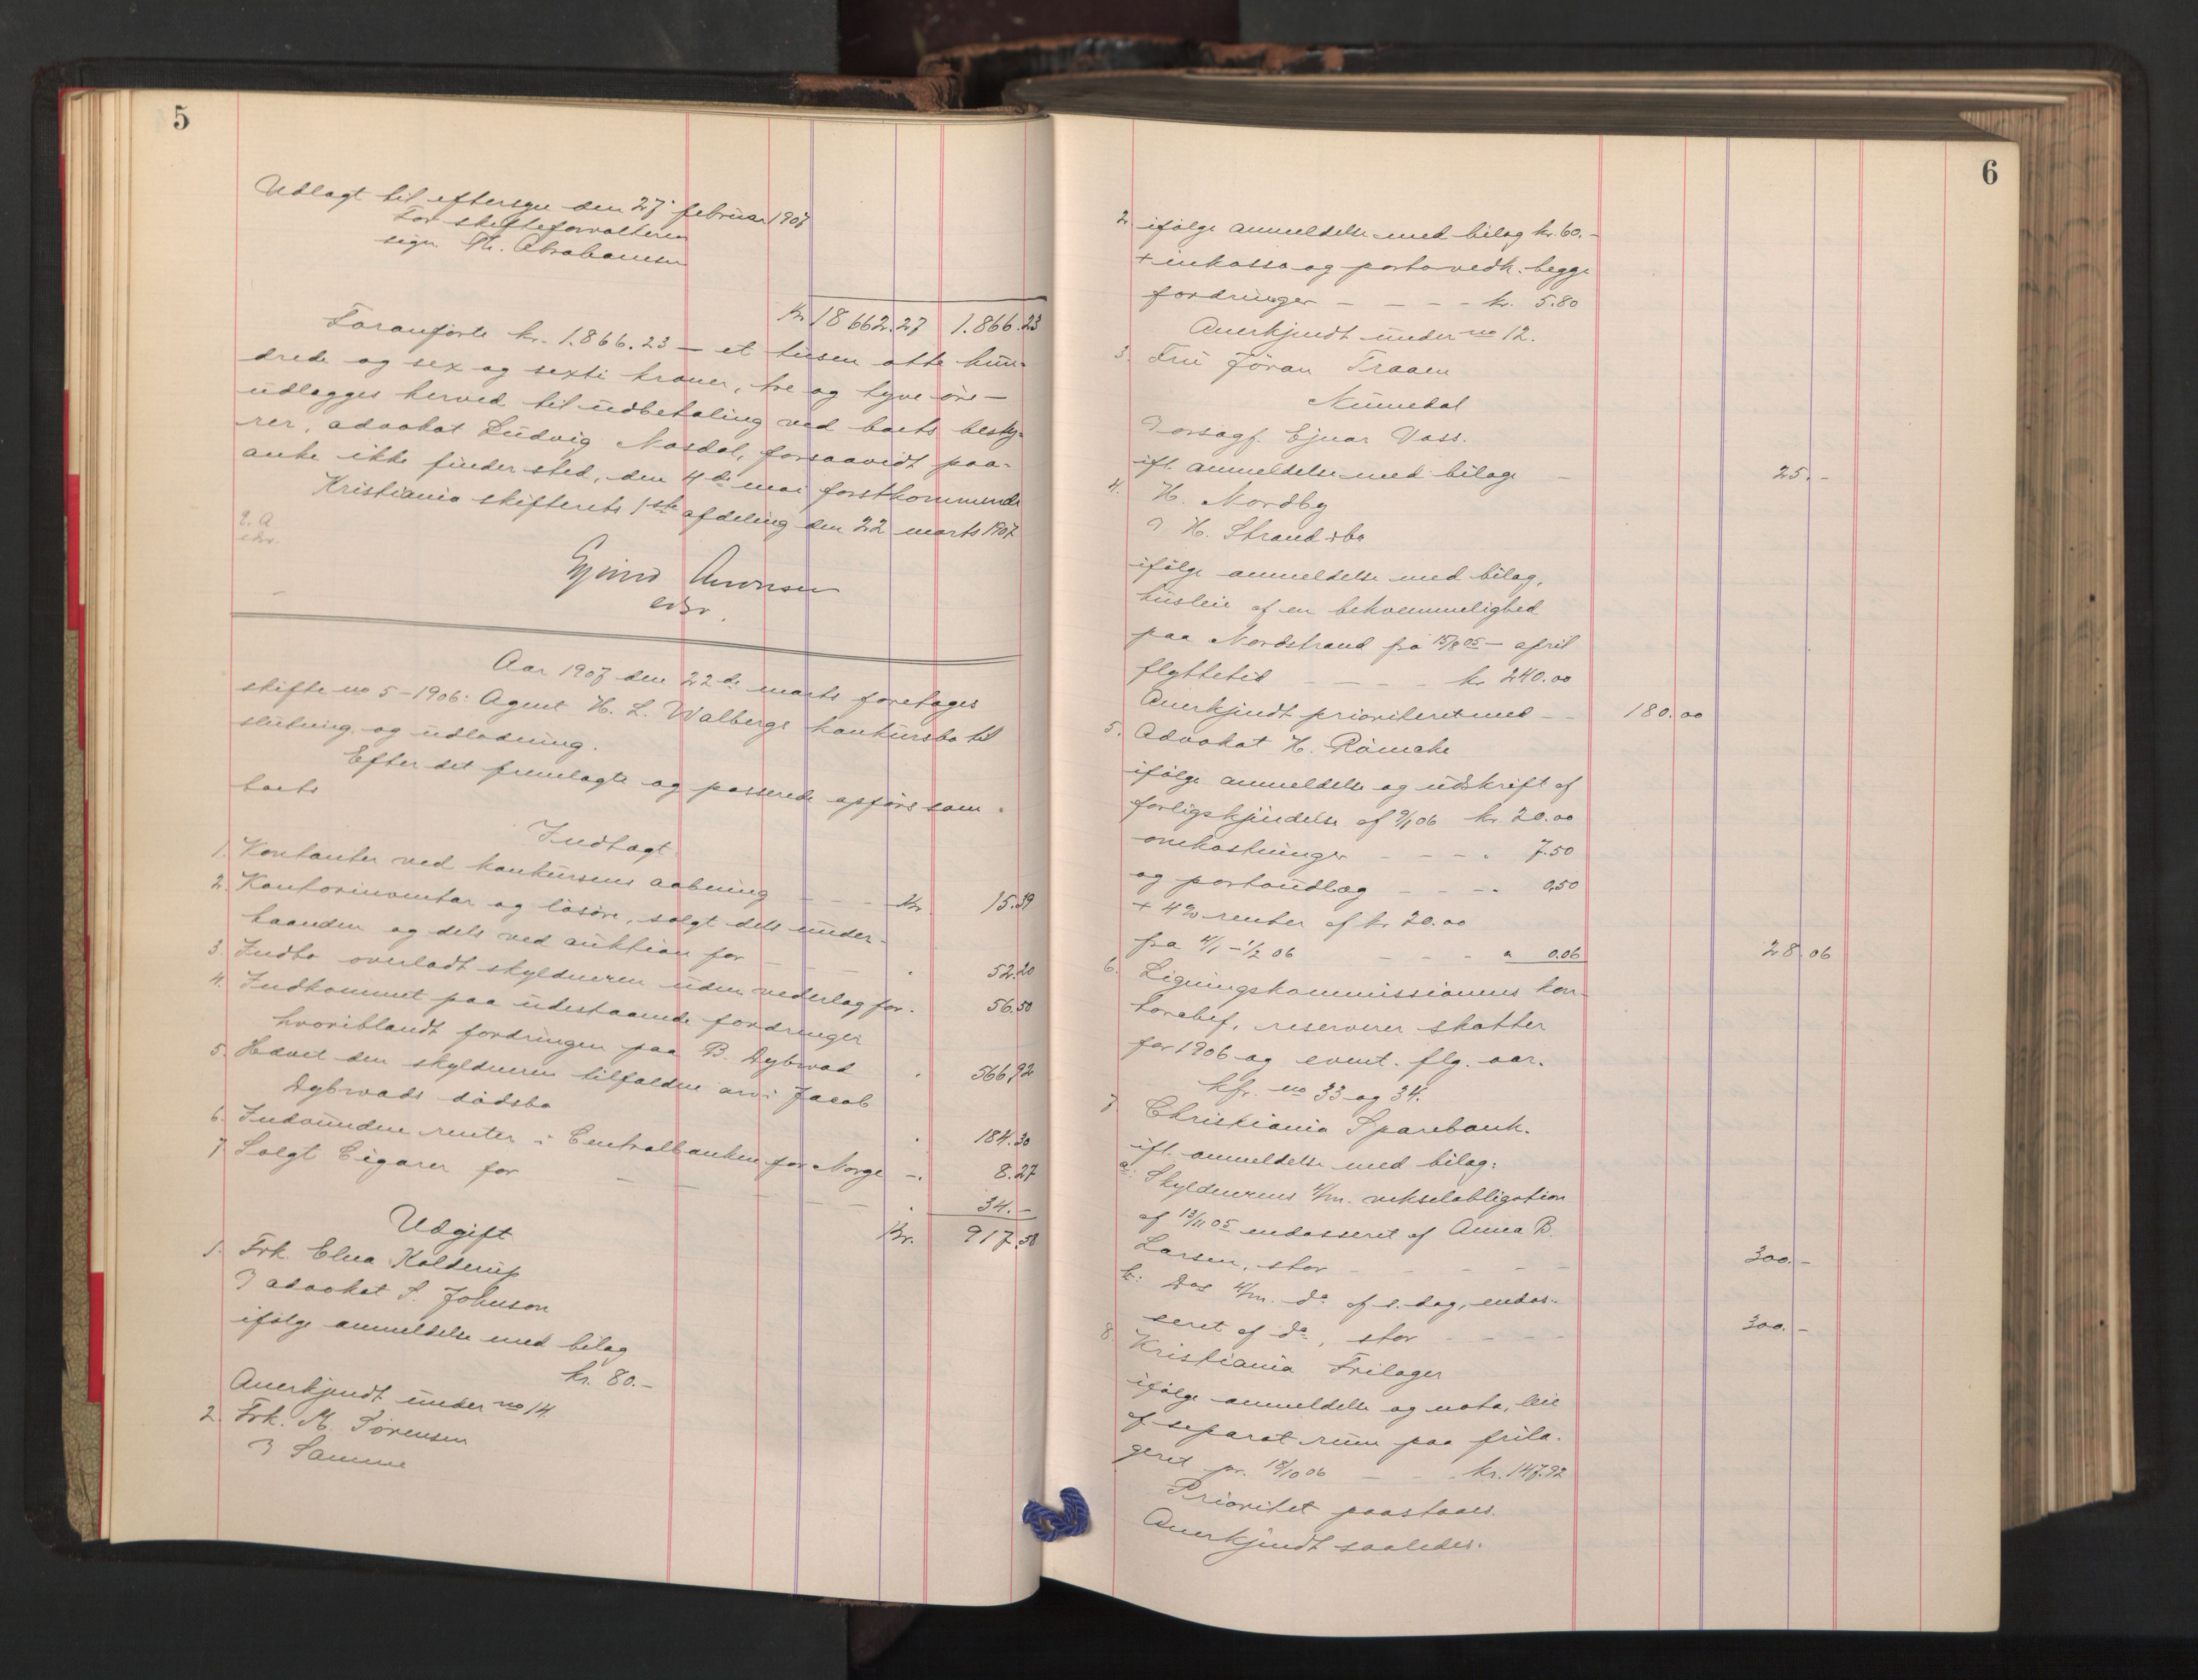 5
Udlagt til eftersyn den 27. februar 1907
For skifteforvalteren
sign. Th. Abrahamsen
Kr. 18 662.27 1.866.23
Foranførte kr. 1.866.23 — et tusen otte hun-
drede og sex og sexti kroner, tre og tyve øre —
udlægges herved til udbetaling ved boets besty-
rer, advokat Ludvig Mosdal, forsaavidt paa-
anke ikke finder sted, den 4de mai førstkommende
Kristiania skifterets 1ste afdeling den 22 marts 1907
edsv.
Aar 1907 den 22de marts foretages
skifte no 5-1906: Agent H. L. Walbergs konkursbo til
slutning og udlodning.
Efter det fremlagte og passerede opføres som
boets
Indtægt
1. Kontanter ved konkursens aabning - - - Kr. 15.39
2. Kontorinventar og løsøre, solgt dels under-
haanden og dels ved auktion for - - - 52.20
3. Indbo overladt skyldneren uden vederlag for. 56.50
4. Indkommet paa udestaaende fordringer
hvoriblandt fordringen paa B. Dybwad . 566.92
5. Hævet den skyldneren tilfaldne arv i Jacob
Dybwads dødsbo . 184.30
6. Indvundne renter i Centralbanken for Norge -. 8.27
7 Solgt Cigarer for - - - - . 34.-
Kr. 917.58
Udgift
1. Frk. Elna Kolderup
advokat S. Johnson
ifølge anmeldelse med bilag
kr. 80.-
Anerkjendt under no 14.
2. Frk. M. Sørensen
Samme
6
2. ifølge anmeldelse med bilag kr. 60.-
+ inkasso og porto vedk. begge
fordringer - - - - kr. 5.80
Anerkjendt under no 12.
3. Fru Jöran Traaen
Numedal
Ejnar Voss.
ifl. anmeldelse med bilage - 25.-
4. H. Nordby
H. Strand
ifølge anmeldelse med bilag,
husleie af en bekvemmelighed
paa Nordstrand fra 15/8 05 - april
flyttetid - - - - kr. 240.00
Anerkjendt prioriteret med - - 180.00
5. Advokat H. Römcke
ifølge anmeldelse og udskrift af
forligskjendelse af 9/1 06 kr. 20.00
omkostninger - - - . 7.50
og portoudlæg - - - . 0.50
+ 4% renter af kr. 20.00
fra 4/1 - 1/2 06 - - - " 0.06 28.06
6. Ligningskommissionens kon-
torchef, reserverer skatter
for 1906 og event. flg. aar.
kfr. no 33 og 34.
7 Christiania Sparebank.
ifl. anmeldelse med bilag:
a: Skyldnerens 4/m. vekselobligation
af 13/11 05 endosseret af Anna B.
Larsen, stor - - - - - 300.-
b: Dos 4/m. do af s. dag, endos-
seret af do, stor - - - - 300.-
8 Kristiania Frilager
ifølge anmeldelse og nota, leie
af separat rum paa frila-
geret pr. 18/10 06 - - . kr. 147.92
Prioritet paastaaes.
Anerkjendt saaledes.